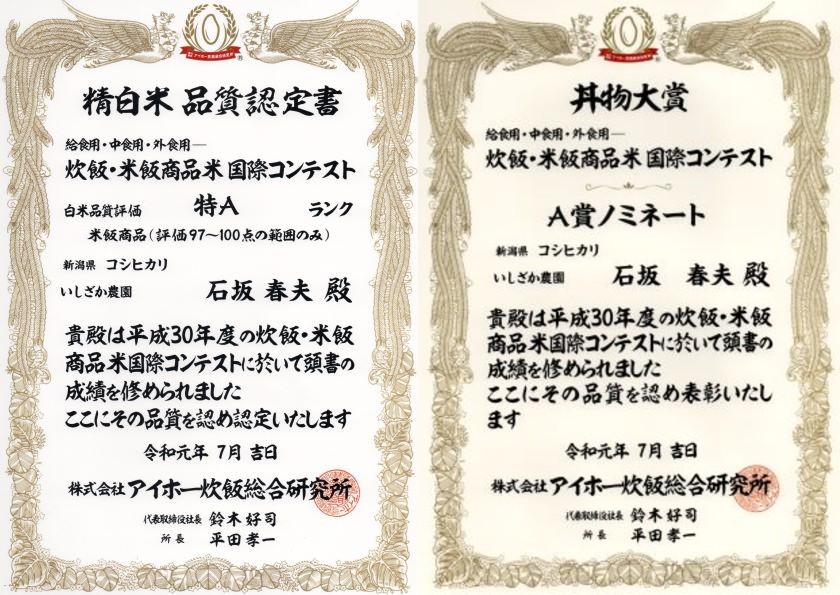 精白米 品質認定書
給食用・中食用・外食用―
炊飯・米飯商品米 国際コンテスト
白米品質評価 特A ランク
米飯商品(評価97〜100点の範囲のみ)
新潟県 コシヒカリ
いしざか農園 石坂 春夫 殿
貴殿は平成30年度の炊飯・米飯
商品米国際コンテストに於いて頭書の
成績を修められました
ここにその品質を認め認定いたします
令和元年 7月 吉日
株式会社 アイホー炊飯総合研究所
代表取締役社長 鈴木好司
所長 平田孝一
丼物大賞
給食用・中食用・外食用―
炊飯・米飯商品米 国際コンテスト
A賞ノミネート
新潟県 コシヒカリ
いしざか農園 石坂 春夫 殿
貴殿は平成30年度の炊飯・米飯
商品米国際コンテストに於いて頭書の
成績を修められました
ここにその品質を認め表彰いたし
ます
令和元年 7月 吉日
株式会社 アイホー炊飯総合研究所
代表取締役社長 鈴木好司
所長 平田孝一